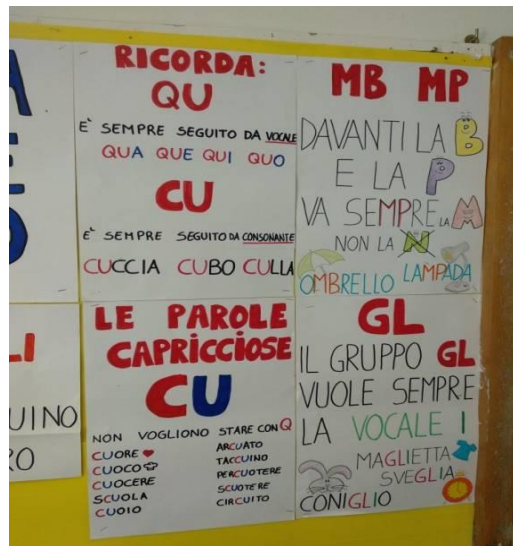 RICORDA:
QU
E' SEMPRE SEGUITO DA VOCALE
QUA QUE QUI QUO
CU
E' SEMPRE SEGUITO DA CONSONANTE
CUCCIA CUBO CULLA
MB MP
DAVANTI LA B
E LA P
VA SEMPRE LA M
NON LA N
OMBRELLO LAMPADA
LE PAROLE
CAPRICCIOSE
CU
NON VOGLIONO STARE CON Q
CUORE
CUOCO
CUOCERE
SCUOLA
CUOIO
ARCUATO
TACCUINO
PERCUOTERE
SCUOTERE
CIRCUITO
GL
IL GRUPPO GL
VUOLE SEMPRE
LA VOCALE I
MAGLIETTA
SVEGLIA
CONIGLIO
LI
UINO
RO